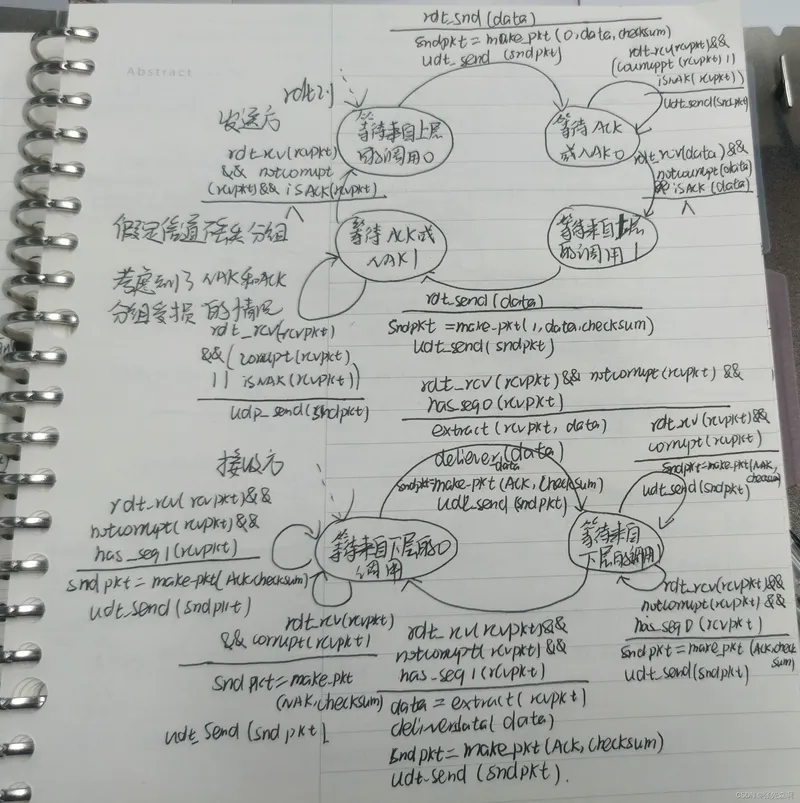 Abstract
rdt_snd(data)
sndpkt = make_pkt(0,data,checksum)
udt_send(sndpkt)
rdt_rcv(rcvpkt)&&
(courruppt(rcvpkt)||
isNAK(rcvpkt))
udt_send(sndpkt)
rdt2.1
发送方
等待来自上层
的调用0
等待ACK
或NAK0
rdt_rcv(rcvpkt)
&& notcorrupt
(rcvpkt)&& isACK(rcvpkt)
Λ
rdt_rcv(data)&&
notcorrupt(data)
&& isACK(data)
Λ
假定信道不丢失分组
等待ACK或
NAK1
等待来自上层
的调用1
考虑到了NAK和ACK
分组受损的情况
rdt_send(data)
sndpkt = make_pkt(1,data,checksum)
udt_send(sndpkt)
rdt_rcv(rcvpkt)
&&(corrupt(rcvpkt)
|| isNAK(rcvpkt))
udp_send(sndpkt)
rdt_rcv(rcvpkt)&& notcorrupt(rcvpkt)&&
has_seq0(rcvpkt)
extract(rcvpkt,data)
deliever(data)
data
sndpkt=make_pkt(Ack,checksum)
udt_send(sndpkt)
rdt_rcv(rcvpkt)&&
corrupt(rcvpkt)
sndpkt=make_pkt(NAK,
checksum)
udt_send(sndpkt)
接收方
rdt_rcv(rcvpkt)&&
notcorrupt(rcvpkt)&&
has_seq1(rcvpkt)
sndpkt = make_pkt(Ack,checksum)
udt_send(sndpkt)
等待来自下层的0
调用
等待来自
下层的调用
rdt_rcv(rcvpkt)
&& corrupt(rcvpkt)
sndpkt=make_pkt
(NAK,checksum)
udt_send(sndpkt)
rdt_rcv(rcvpkt)&&
notcorrupt(rcvpkt)&&
has_seq1(rcvpkt)
data = extract(rcvpkt)
deliverdata(data)
sndpkt=make_pkt(Ack,checksum)
udt_send(sndpkt).
rdt_rcv(rcvpkt)&&
notcorrupt(rcvpkt)&&
has_seq0(rcvpkt)
sndpkt=make_pkt(Ack,check
sum)
udt_send(sndpkt)